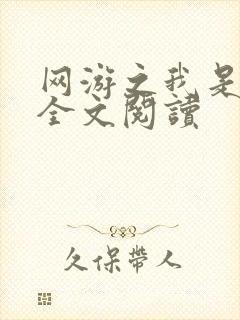 网游之我是
全文閱讀
久保带人